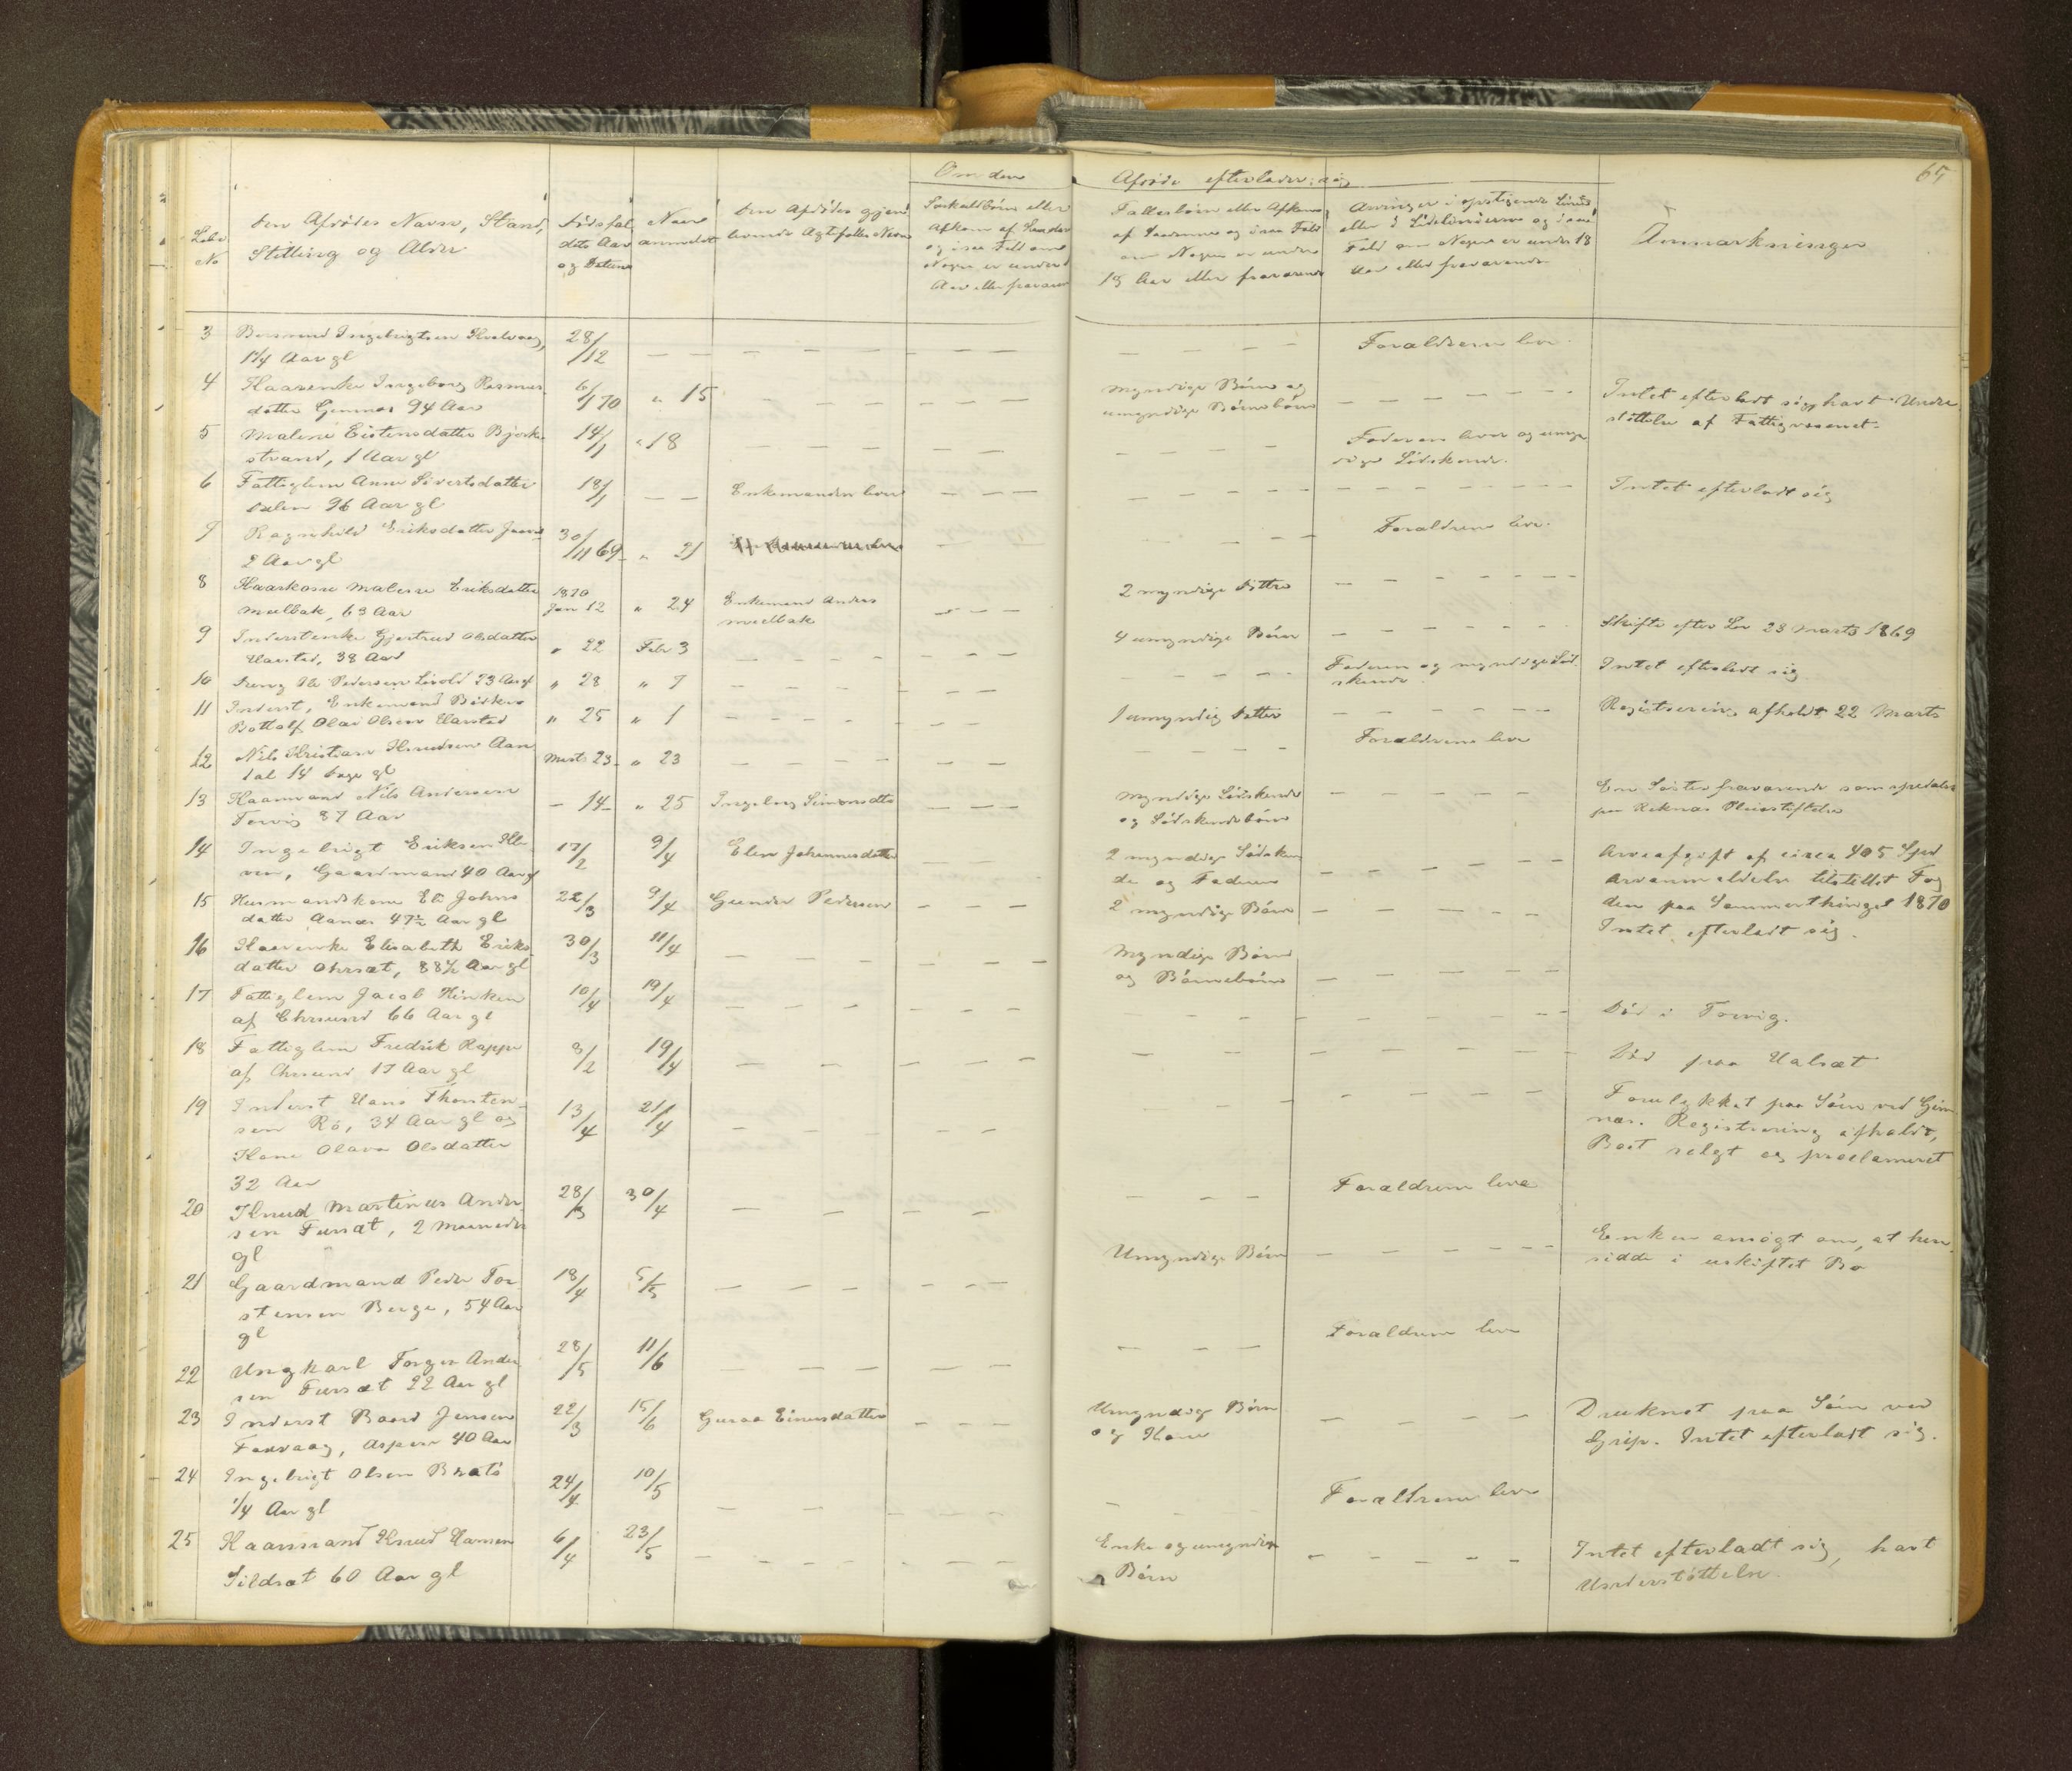 65
Om den Afdøde efterlader sig
Løbe No
Den Afdødes Navn, Stand,
Stilling og Alder
Dødsfal
dets Aar
og Datum
Naar
anmeldt
Den Afdødes gjen
levende Ægtefælles Navn
Særkuldbørn eller
Afkom af
og i saa Fald om
Nogen er under
Aar eller fraværen
Fællesbørn eller Afkom
af Saadanne og i saa Fald
om Nogen er under
18 Aar eller fraværende
Arvinger i opstigende Linie
eller i Sidelinierne og i saa
Fald om Nogen er under 18
Aar eller fraværende
Anmærkninger
3 Ingebrigtsen Kvalvaag,
1 1/4 Aar gl
28/12 — —
Forældrene leve
4 Kaarenke Ingeborg Rasmus
datter Gimnæs 94 Aar
6/1 70 " 15
myndige Børn og
umyndige Børnebørn
Intet efterladt sig, havt Under
støttelse af Fattigvæsenet
5 Malene Eistensdatter Bjerke
strand, 1 Aar gl
14/1 " 18
Faderen lever og umyn
dige Sødskende.
6 Fattiglem Anne Sivertsdatter
96 Aar gl
18/1 — —
Enkemanden lever
Intet efterladt sig
7 Ragnhild Eriksdatter
2 Aar gl
30/11 69 " 21
Forældrene leve.
8 Kaarkone Malene Eriksdatter
Meelbak, 63 Aar
1870
Jan 12 " 24
Enkemand Anders
Meelbak
2 myndige Døttre
9 Inderstenke Gjertrud Olsdatter
Harsted, 38 Aar
" 22 Febr 3
4 umyndige Børn
Skifte efter Lov 23 Marts 1869
10 Dreng Ole Pedersen Livold 23 Aar gl
" 28 " 7
Faderen og myndige Sød
skende
Intet efterladt sig
11 Inderst, Enkemand Bødker
Bottolf Olai Olsen Harsted
" 25 " 1
1 umyndig Datter
Registrering afholdt 22 Marts
12 Nils Kristian Knudsen Aan
dal 14 Dage gl
Marts 23 " 23
Forældrene leve
13 Kaarmand Nils Andersen
Torvig 87 Aar
— 14 " 25
Ingeborg Simonsdtr
Myndige Sødskende
og Sødskendebørn
En Søster fraværende som spedalsk
paa Reknæs Pleiestiftelse
14 Ingebrigt Eriksen
Gaardmand 40 Aar gl
17/2 9/4
Elen Johannesdatter
2 myndige Sødsken
de og Faderen
Arveafgift af circa 405 Spd
Arvanmeldelse tilstillet Fog
den paa Sommerthinget 1870
15 Husmandskone Eli Johns
datter Aanæs 47 1/2 Aar gl
22/3 9/4
Gunder Pedersen
2 myndige Børn
Intet efterladt sig.
16 Kaarenke Elisabeth Eriks
datter Ohrsæt, 88 1/2 Aar gl
30/3 11/4
Myndige Børn
og Børnebørn
17 Fattiglem Jacob Hinken
af Chrsund 66 Aar gl
10/4 19/4
Død i Torvig.
18 Fattiglem Fredrik Rappe
af Chrsund 17 Aar gl
8/2 19/4
Død paa Ualsæt
19 Inderst Hans Thorsten
sen Rø, 34 Aar gl og
Kone Olava Olsdatter
32 Aar
13/4 21/4
Forulykket paa Søen ved Gim
næs. Registrering afholdt,
Boet solgt og proclameret
20 Knud Martinus Ander
sen Fursæt, 2 Maaneder
gl
28/3 30/4
Forældrene leve
21 Gaardmand Peder Tor
stensen Berge, 54 Aar
gl
18/4 5/5
Umyndige Børn
Enken ansøgt om, at hen
sidde i uskiftet Bo
22 Ungkarl Torger Ander
sen Fursæt 22 Aar gl
28/5 11/6
Forældrene leve
23 Inderst Baard Jensen
Aspøen 40 Aar
22/3 15/6
Guroa Einersdatter
Umyndige Børn
og Kone
Druknet paa Søen ved
Grip. Intet efterladt sig.
24 Ingebrigt Olsen Bratø
1/4 Aar gl
24/4 10/5
Forældrene leve
25 Kaarmand Knud Hansen
Sildsæt 60 Aar gl
6/4 23/5
Enke og umyndige
Børn
Intet efterladt sig, havt
Understøttelse